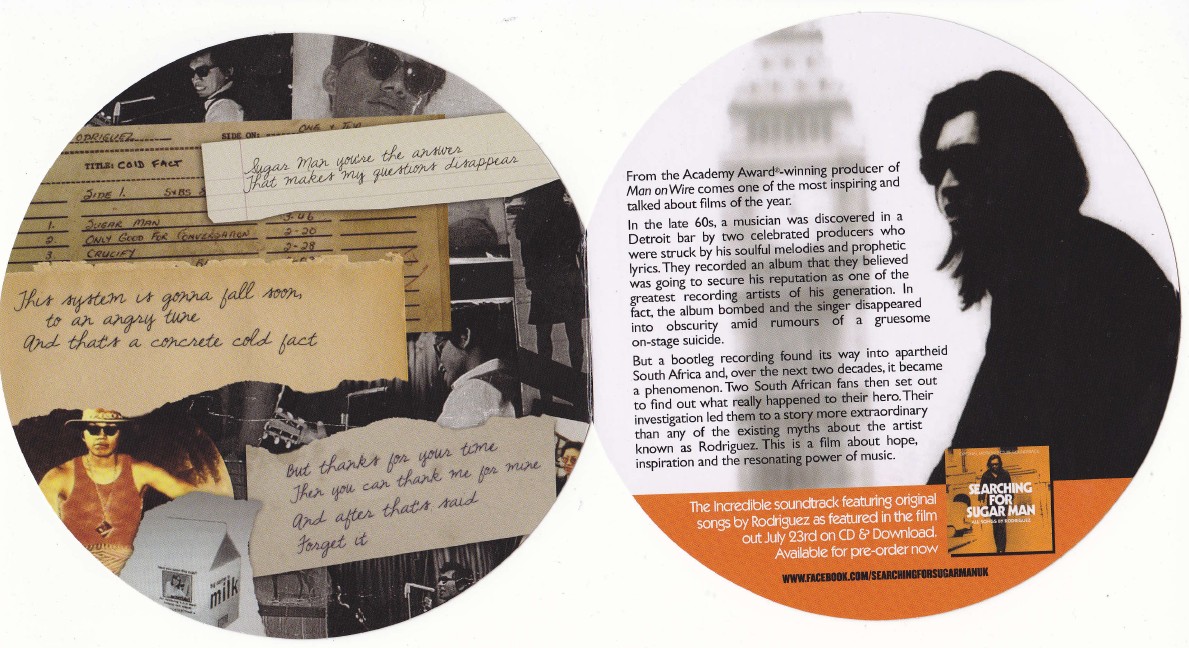 ODRIGUEZ
SIDE ON:
ONE & TWO
TITLE: COLD FACT
SIDE 1.
1. SUGAR MAN 3-46
2. ONLY GOOD FOR CONVERSATION 2-20
3. CRUCIFY 2-28
Sugar Man you're the answer
That makes my questions disappear
This system is gonna fall soon,
to an angry tune
And that's a concrete cold fact
But thanks for your time
Then you can thank me for mine
And after that's said
Forget it
milk
From the Academy Award®-winning producer of
Man on Wire comes one of the most inspiring and
talked about films of the year.
In the late 60s, a musician was discovered in a
Detroit bar by two celebrated producers who
were struck by his soulful melodies and prophetic
lyrics. They recorded an album that they believed
was going to secure his reputation as one of the
greatest recording artists of his generation. In
fact, the album bombed and the singer disappeared
into obscurity amid rumours of a gruesome
on-stage suicide.
But a bootleg recording found its way into apartheid
South Africa and, over the next two decades, it became
a phenomenon. Two South African fans then set out
to find out what really happened to their hero. Their
investigation led them to a story more extraordinary
than any of the existing myths about the artist
known as Rodriguez. This is a film about hope,
inspiration and the resonating power of music.
The Incredible soundtrack featuring original
songs by Rodriguez as featured in the film
out July 23rd on CD & Download.
Available for pre-order now
SEARCHING
FOR
SUGAR MAN
ALL SONGS BY RODRIGUEZ
WWW.FACEBOOK.COM/SEARCHINGFORSUGARMANUK